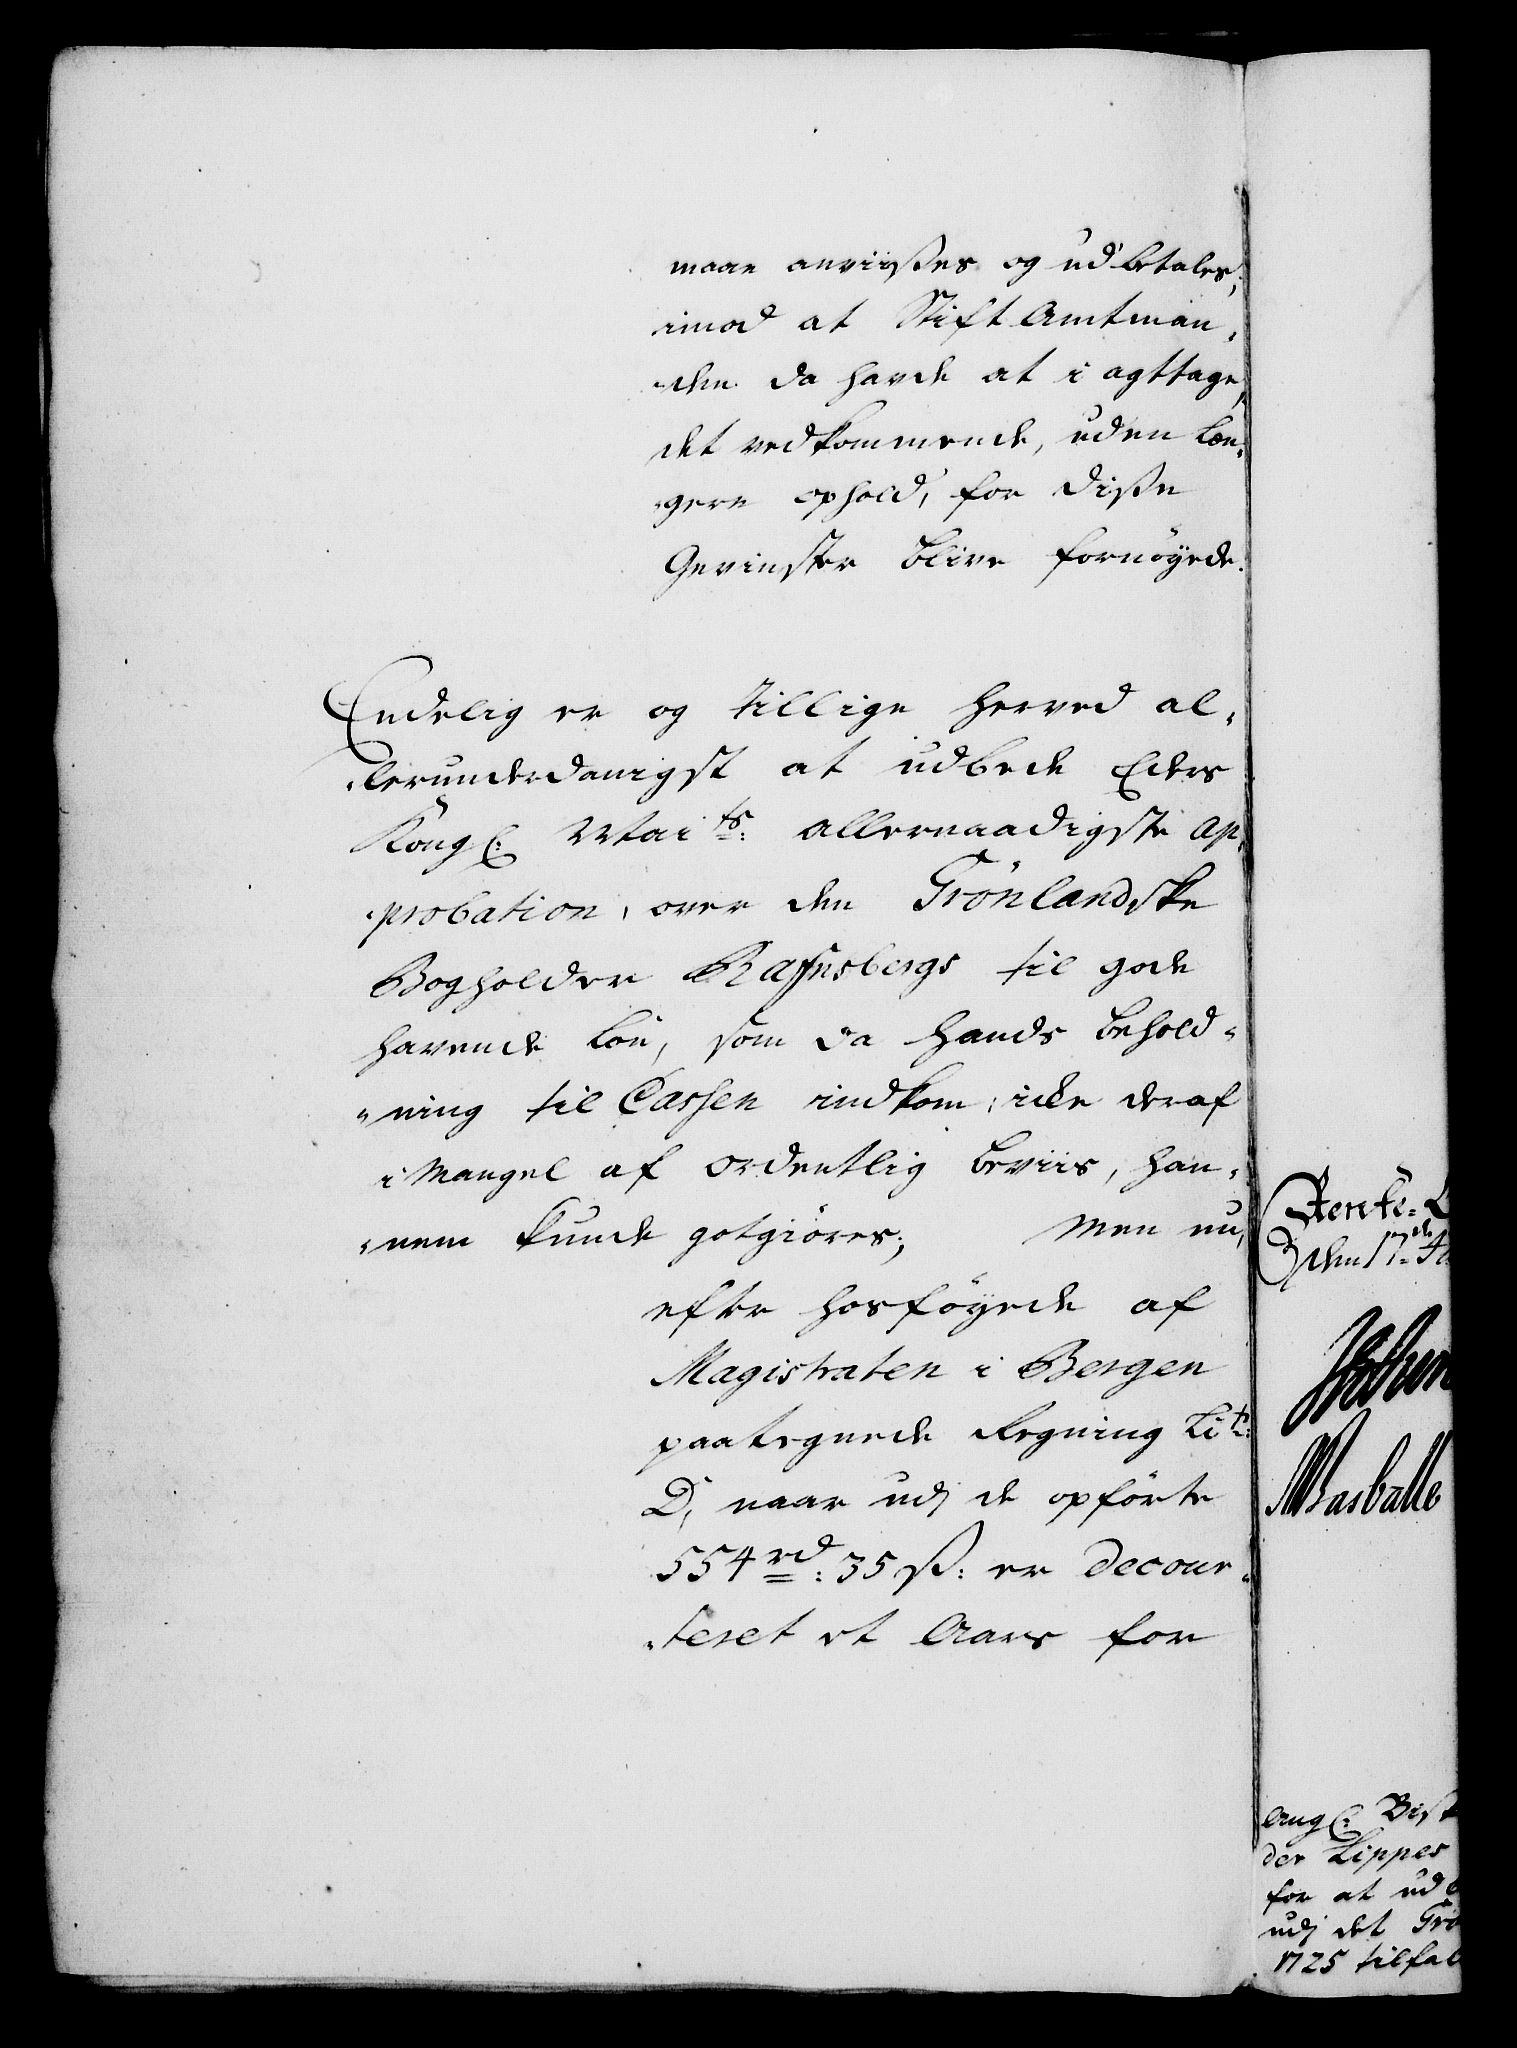 maae anviißes og udbetales,
imod at Stift Amtman„
„den da havde at i agttage,
det vedkommende, uden læn„
„gere ophold, for diße
Gevinster blive fornöyede.
Endelig er og tillige herved al„
„lerunderdanigst at udbede Eders
Kongl: Maits: allernaadigste Ap„
„probation, over den Grönlandske
Bogholder Raffnsbergs til gode
havende lön, som da hands behold„
„ning til Cassen indkom, icke deraf
i mangel af ordentlig beviis, han„
„nem kunde gotgiöres; Men nu,
efter hosföyede af
Magistraten i Bergen
paategnede Regning Litr:
D, naar udj de opförte
554 rd: 35 ß: er decour„
„teret et Aars for
Rente=
den 17de
Basballe
Angl: Bisk
der Lippes
for at ud
udj det Grö
1725 tilfal